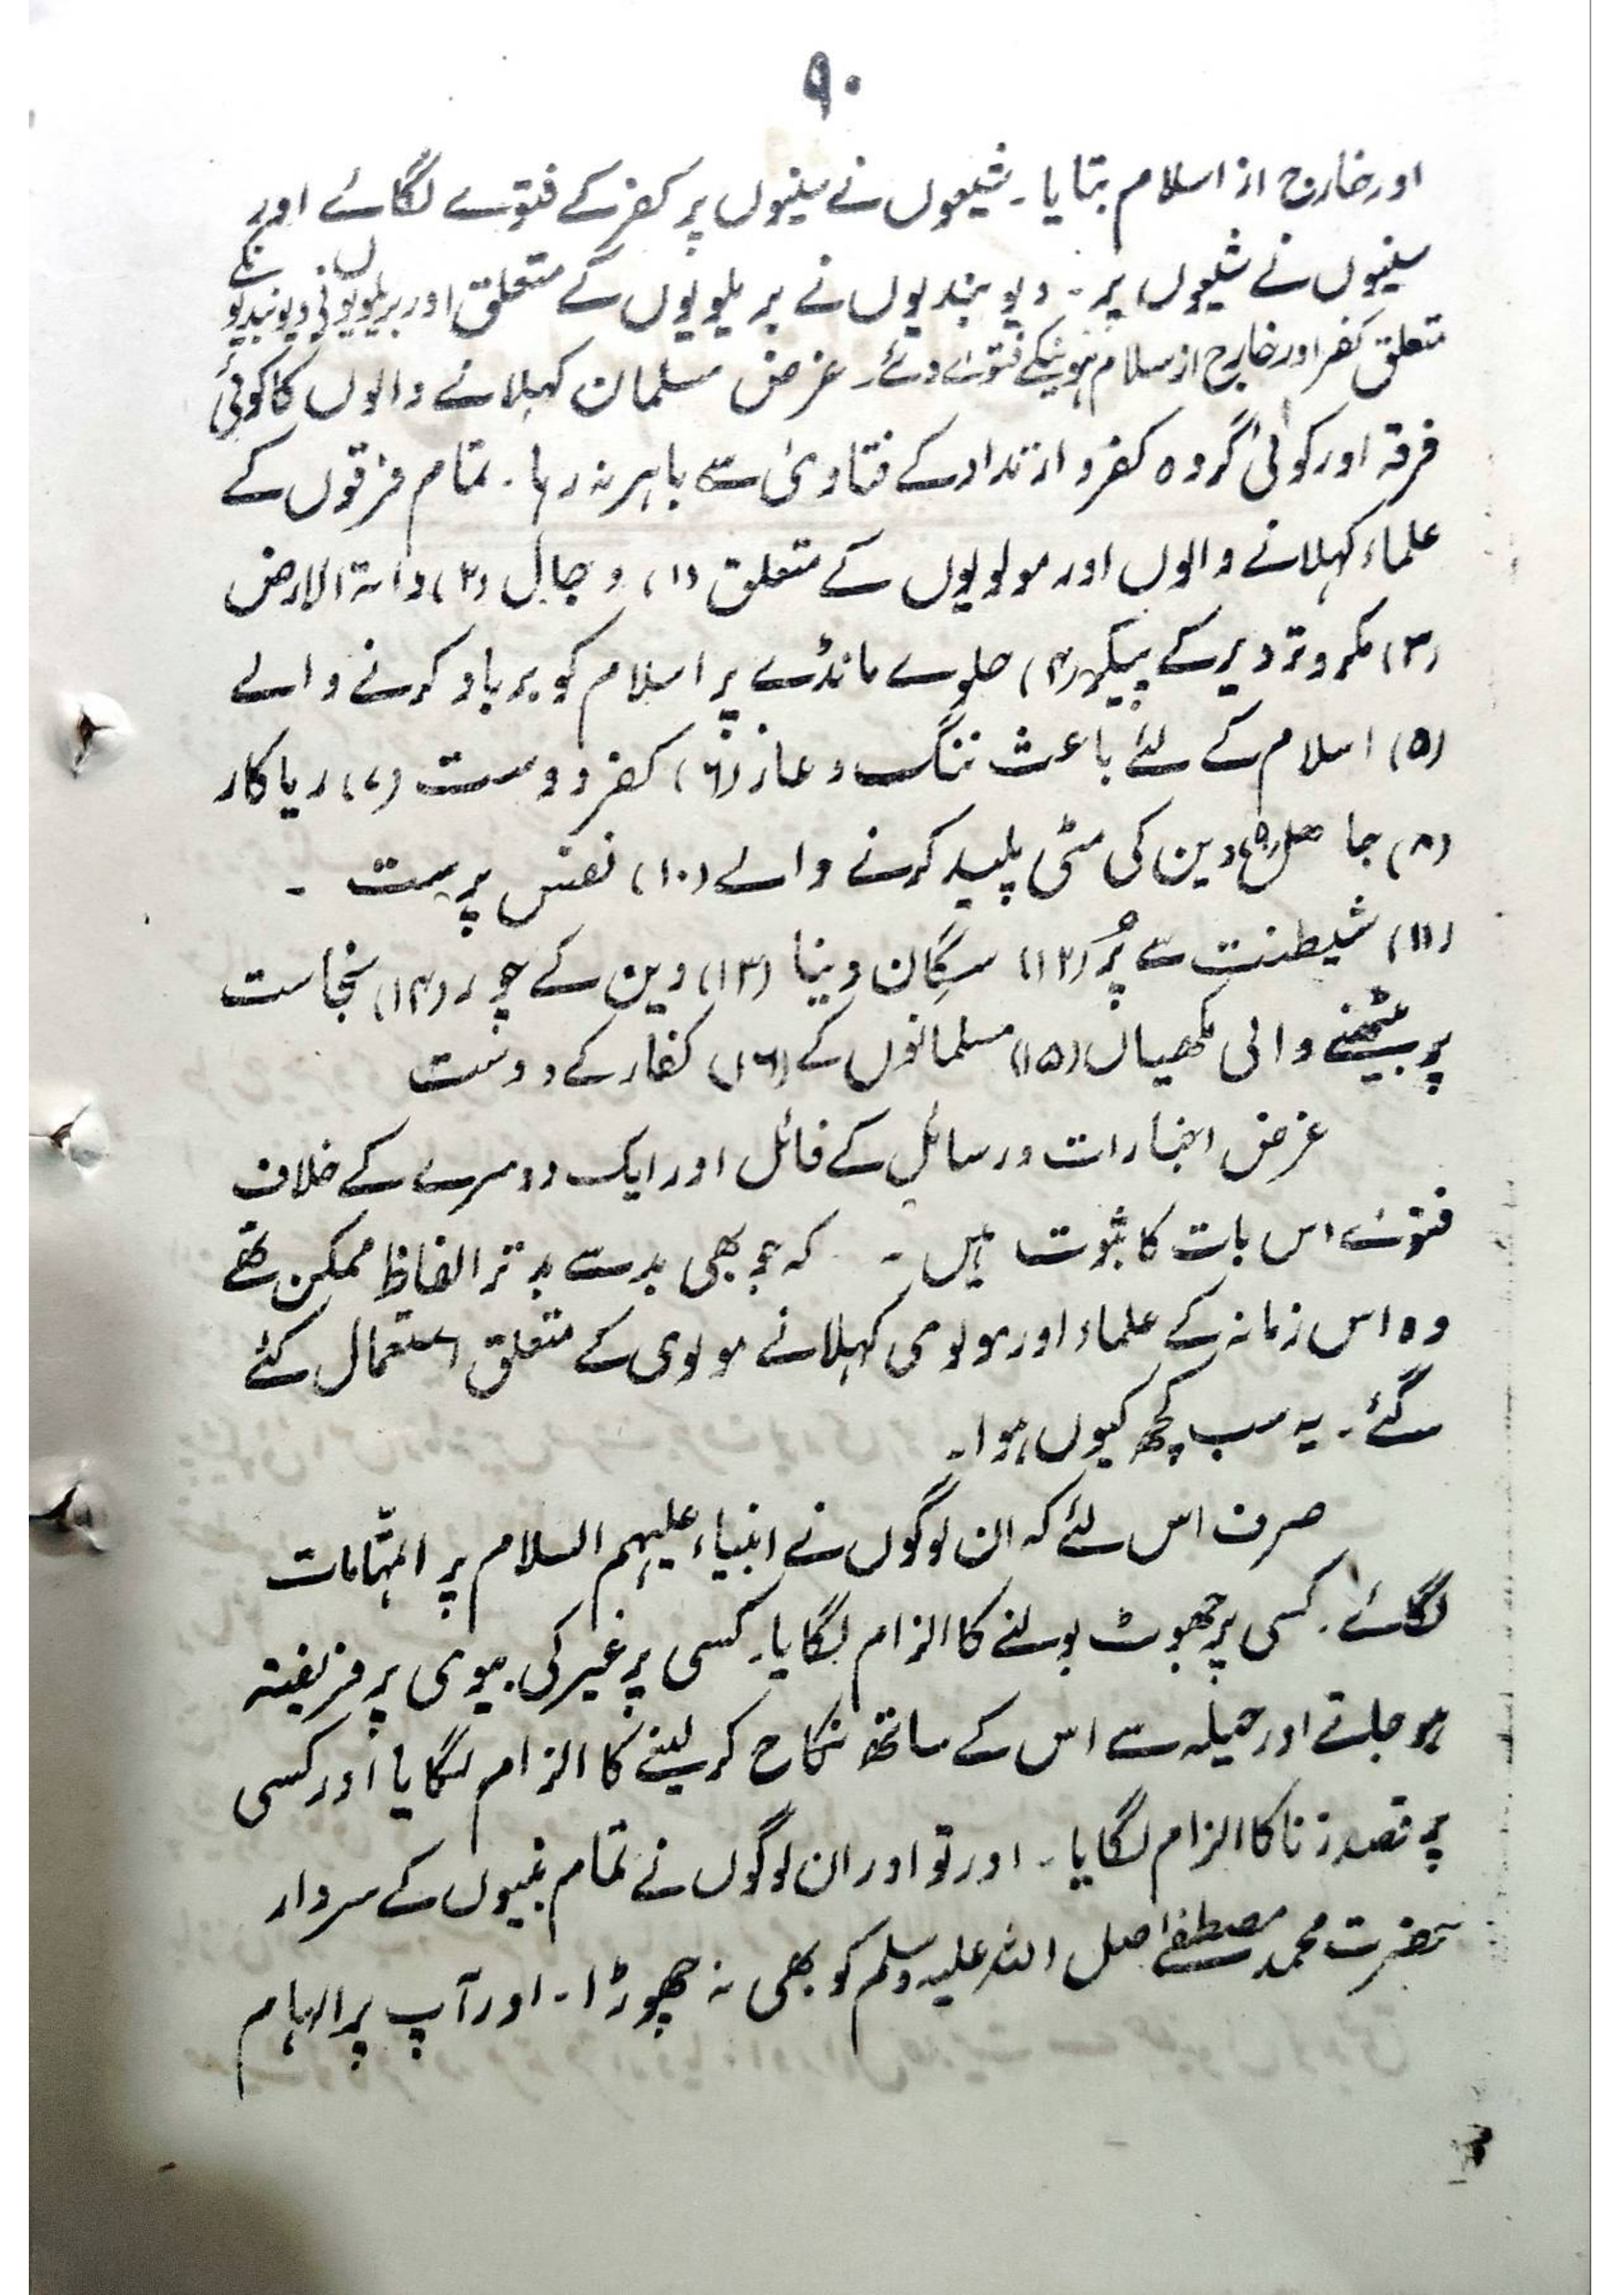 ۹۰
اور خارج از اسلام بتایا۔ شیعوں نے سنیوں پر کفر کے فتوے لگائے اور
سنیوں نے شیعوں پر۔ دیو بندیوں نے بریلویوں کے متعلق اور بریلویوں نے دیوبندیوں کے
متعلق کفر اور خارج از سلام ہونیکے فتوے دئے۔ غرض مسلمان کہلانے والوں کا کوئی
فرقہ اور کوئی گروہ کفر و ارتداد کے فتاویٰ سے باہر نہ رہا۔ تمام فرقوں کے
علماء کہلانے والوں اور مولویوں کے متعلق (۱) دجال (۲) دابۃ الارض
(۳) مکر و تزدیر کے پیکر (۴) حلوے مانڈے پر اسلام کو برباد کرنے والے
(۵) اسلام کے لئے باعث ننگ و عار (۶) کفر دوست (۷) ریاکار
(۸) جاہل (۹) دین کی مٹی پلید کرنے والے (۱۰) نفس پرست ۔
(۱۱) شیطنت سے پُر (۱۲) سگان دنیا (۱۳) دین کے چور (۱۴) نجاست
پر بیٹھنے والی مکھیاں (۱۵) مسلمانوں کے (۱۶) کفار کے دوست
غرض اخبارات و رسائل کے فائل اور ایک دوسرے کے خلاف
فتوے اس بات کا ثبوت ہیں ۔ کہ جو بھی بد سے بد تر الفاظ ممکن تھے
وہ اس زمانہ کے علماء اور مولوی کہلانے مولوی کے متعلق استعمال کئے
گئے۔ یہ سب کچھ کیوں ہوا۔
صرف اس لئے کہ ان لوگوں نے انبیاء علیہم السلام پر اتہامات
لگائے۔ کسی پر جھوٹ بولنے کا الزام لگایا۔ کسی پر غیر کی بیوی پر فریفتہ
ہو جانے اور حیلہ سے اس کے ساتھ نکاح کر لینے کا الزام لگایا اور کسی
پر قصد زنا کا الزام لگایا۔ اور تو اور ان لوگوں نے تمام نبیوں کے سردار
حضرت محمد مصطفےٰ صل اللہ علیہ وسلم کو بھی نہ چھوڑا۔ اور آپ پر الہام